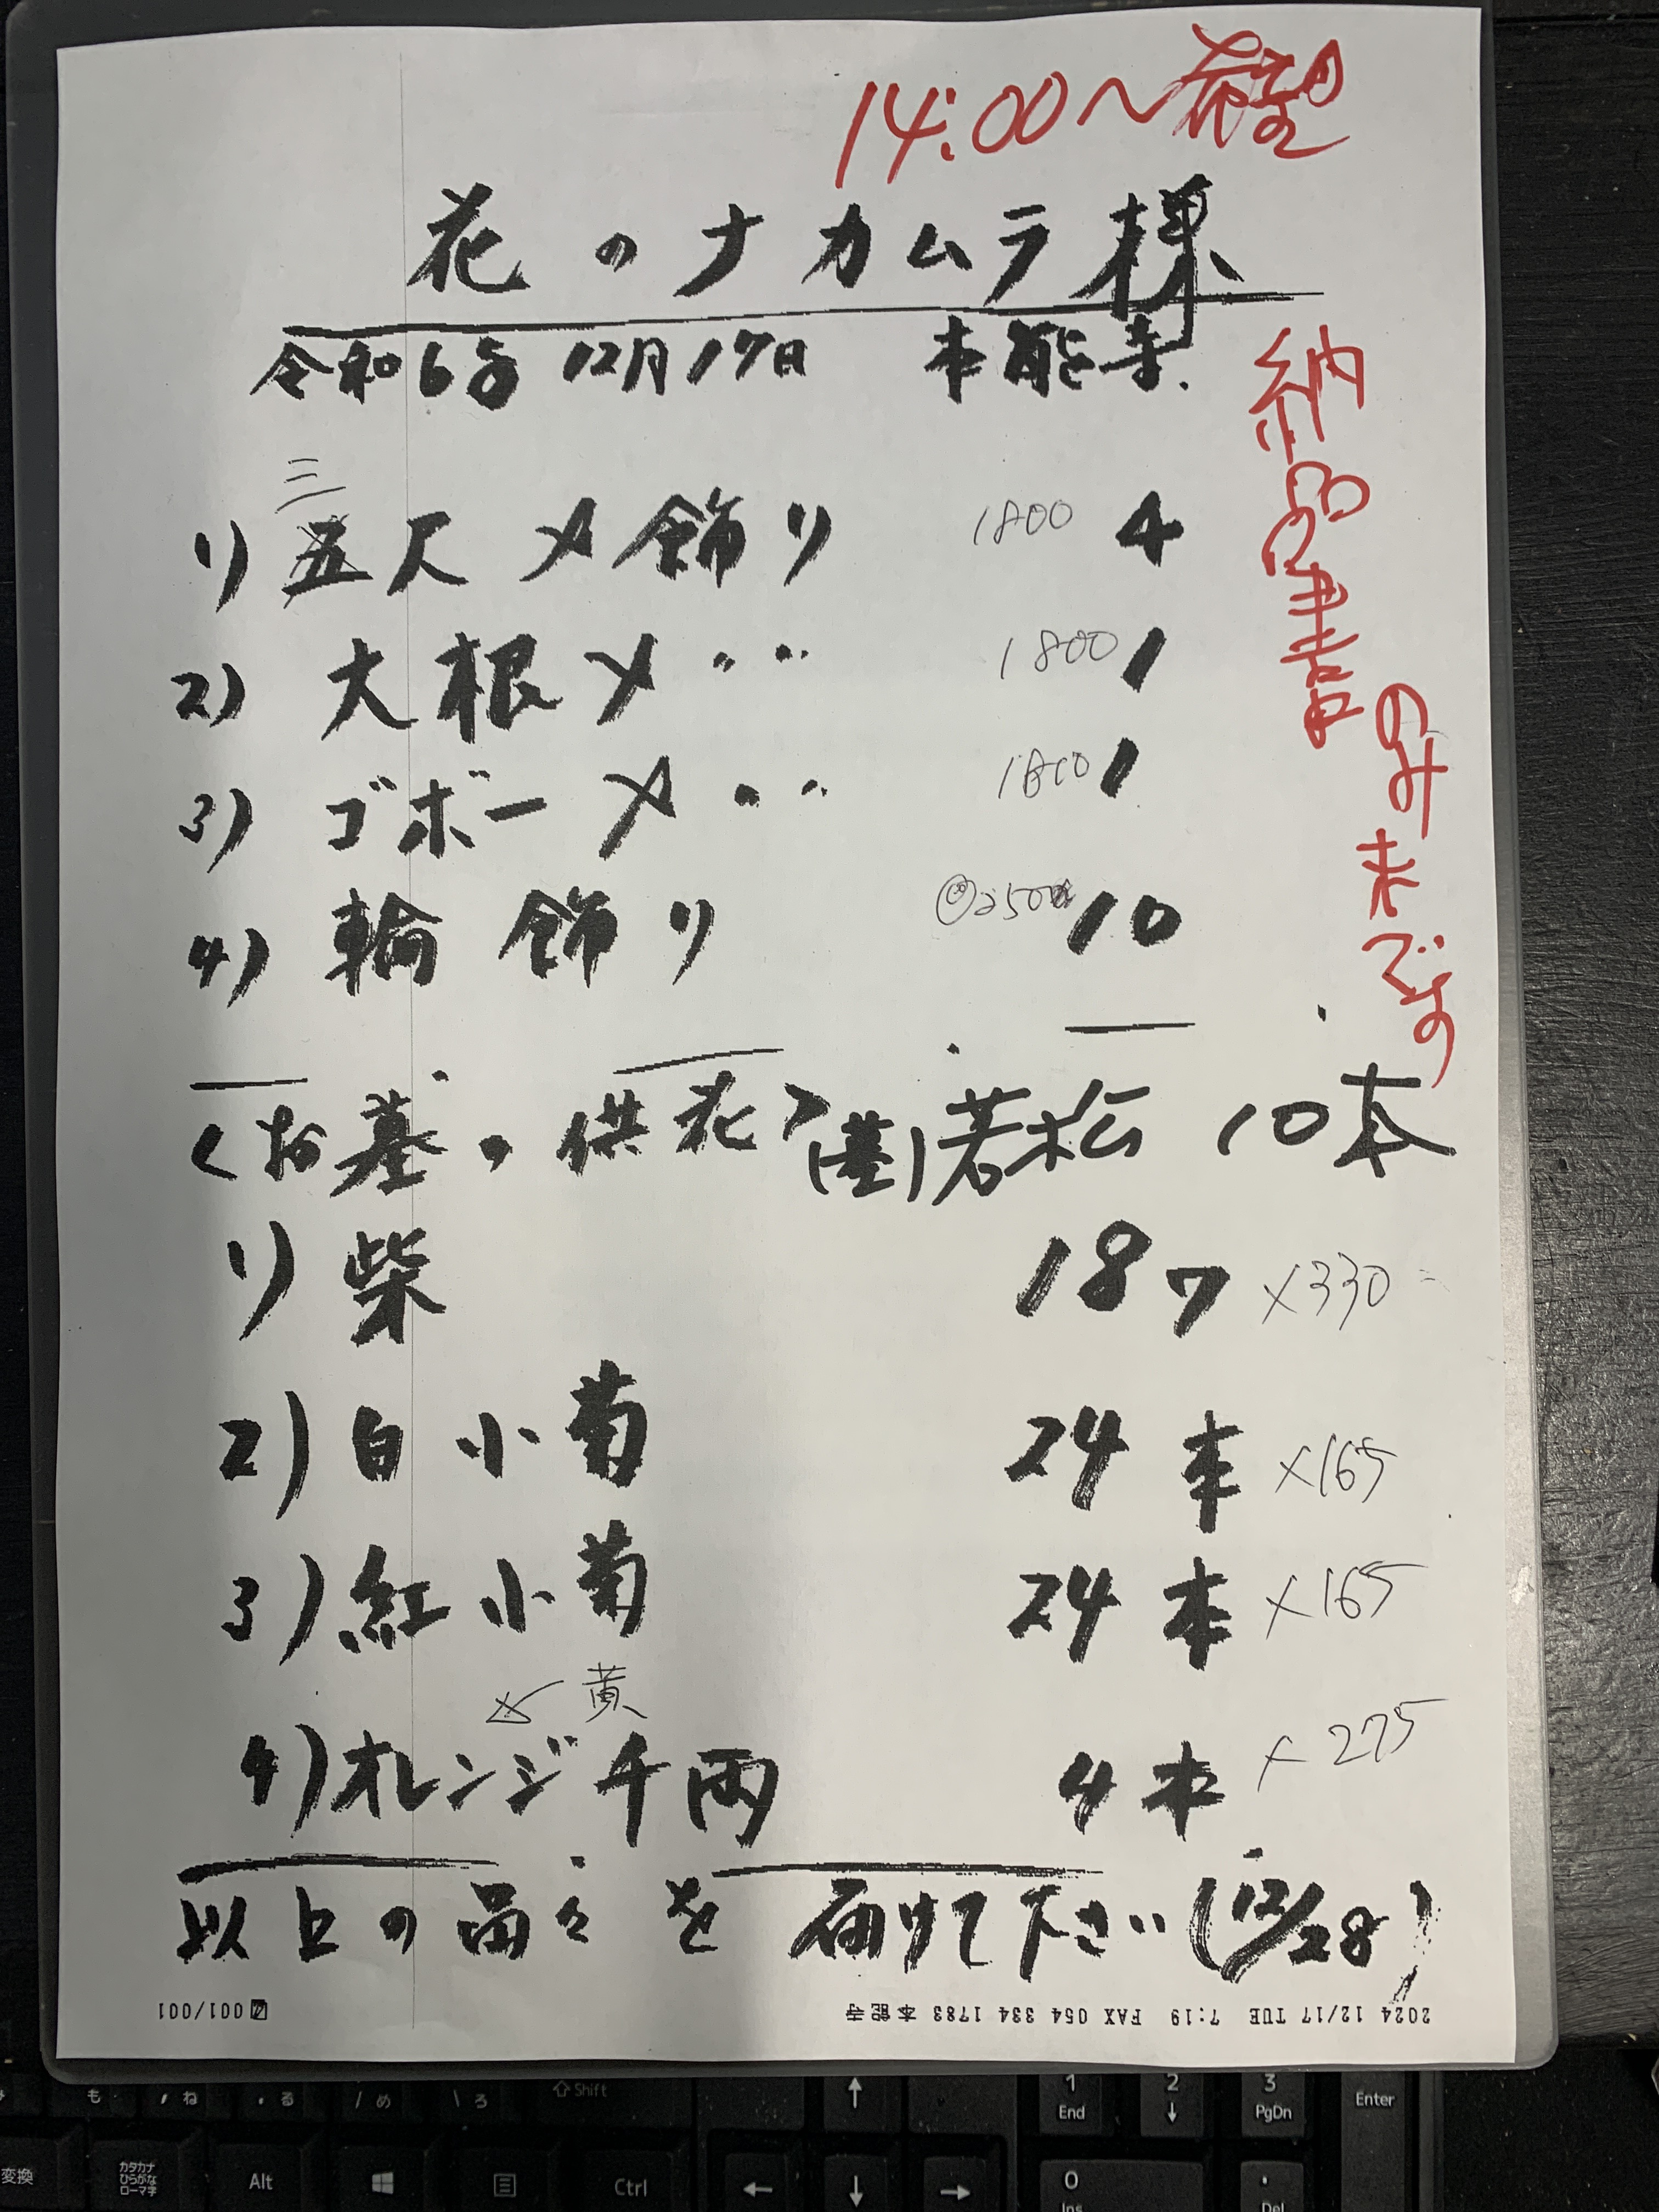 14:00〜希望
花のナカムラ様
令和6年 12月17日 本能寺.
納品書
のみ未です
三
1) 五尺〆飾り 1800 4
2) 大根〆〃〃 1800 1
3) ゴボー〆〃〃 1800 1
4) 輪飾り 10
<お墓の供花> (墓)若松 10本
1) 柴 18ワ ×330
2) 白小菊 24本 ×165
3) 紅小菊 24本 ×165
黄
4) オレンジ千両 4本 ×275
以上の品々を届けて下さい(12/28)
2024 12/17 TUE 7:19 FAX 054 334 1783 本能寺 001/001
も ね る / め \ ろ ⇧Shift ↑ 1 End 2 ↓ 3 PgDn Enter
変換 カタカナ ひらがな ローマ字 Alt Ctrl ← ↓ → 0 Ins . Del